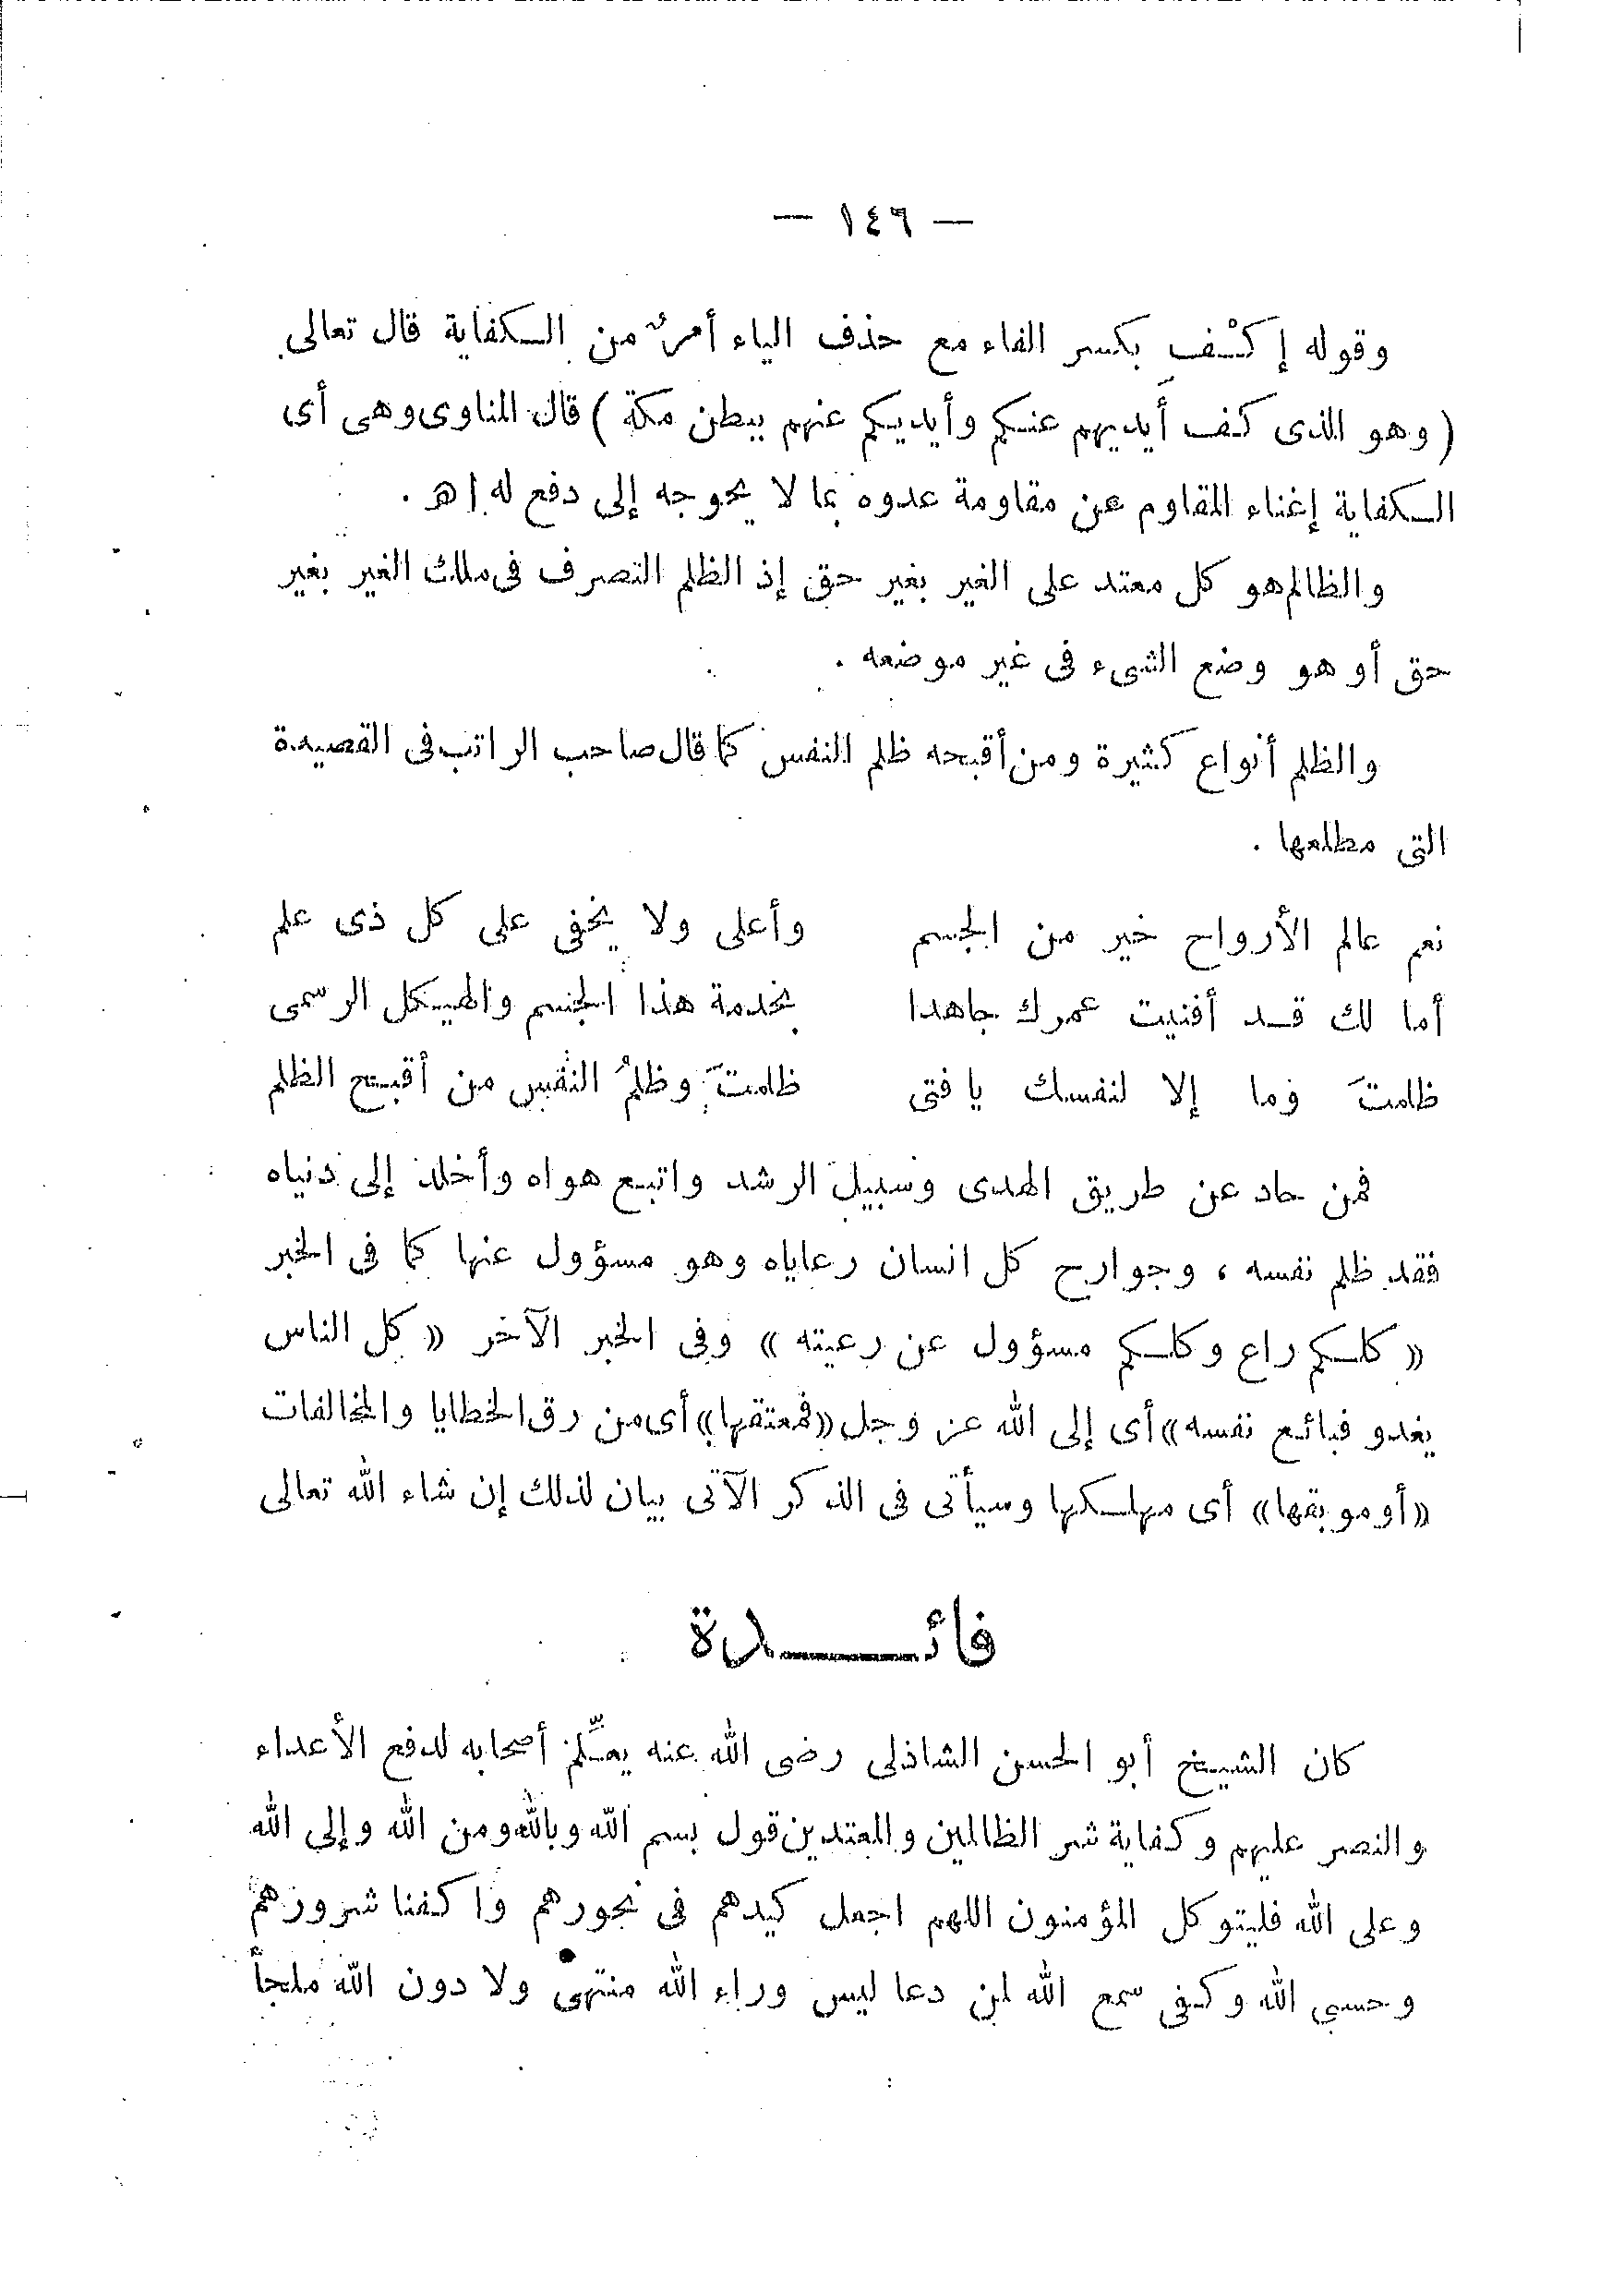 — ١٤٦ —
وقوله إكْفِ بكسر الفاء مع حذف الياء أمرٌ من الكفاية قال تعالى
( وهو الذى كف أيديهم عنكم وأيديكم عنهم ببطن مكة ) قال المناوى وهى أى
الكفاية إغناء المقاوم عن مقاومة عدوه بما لا يحوجه إلى دفع له اهـ .
والظالم هو كل معتد على الغير بغير حق إذ الظلم التصرف فى ملك الغير بغير
حق أو هو وضع الشىء فى غير موضعه .
والظلم أنواع كثيرة ومن أقبحه ظلم النفس كما قال صاحب الراتب فى القصيدة
التى مطلعها .
نعم عالم الأرواح خير من الجسم وأعلى ولا يخفى على كل ذى علم
أما لك قد أفنيت عمرك جاهدا بخدمة هذا الجسم والهيكل الرسمى
ظلمتَ وما إلا لنفسك يا فتى ظلمتَ وظلمُ النفس من أقبح الظلم
فمن حاد عن طريق الهدى وسبيل الرشد واتبع هواه وأخلد إلى دنياه
فقد ظلم نفسه ، وجوارح كل انسان رعاياه وهو مسؤول عنها كما فى الخبر
« كلكم راع وكلكم مسؤول عن رعيته » وفى الخبر الآخر « كل الناس
يغدو فبائع نفسه » أى إلى الله عز وجل « فمعتقها » أى من رق الخطايا والمخالفات
« أو موبقها » أى مهلكها وسيأتى فى الذكر الآتى بيان لذلك إن شاء الله تعالى
فائدة
كان الشيخ أبو الحسن الشاذلى رضى الله عنه يعلِّم أصحابه لدفع الأعداء
والنصر عليهم وكفاية شر الظالمين والمعتدين قول بسم الله وبالله ومن الله وإلى الله
وعلى الله فليتوكل المؤمنون اللهم اجعل كيدهم فى نحورهم واكفنا شرورهم
وحسبى الله وكفى سمع الله لمن دعا ليس وراء الله منتهى ولا دون الله ملجأ